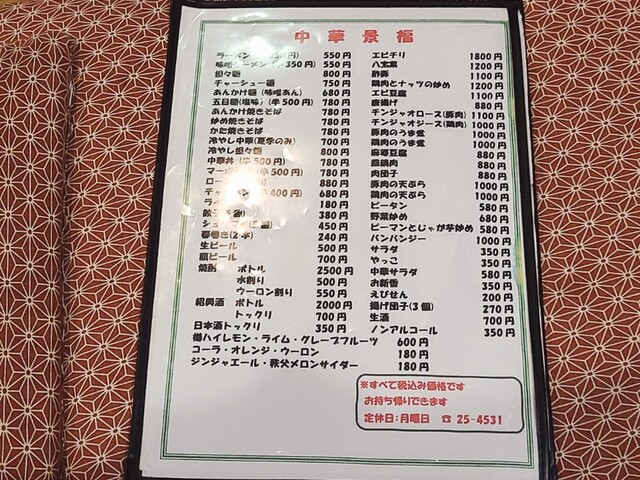 中華景福
ラーメン 円) 550円
味噌ラーメン 350円) 550円
担々麺 800円
チャーシュー麺 750円
あんかけ麺(味噌あん) 680円
五目麺(塩味)(半500円) 780円
あんかけ焼きそば 780円
炒め焼きそば 780円
かた焼きそば 780円
冷やし中華(夏季のみ) 700円
冷やし担々麺 800円
中華丼(半500円) 780円
マーボー 半500円) 780円
ロー 880円
チャー 半400円) 680円
ライ 180円
餃子 380円
シュ 450円
春巻き(2本) 240円
生ビール 500円
瓶ビール 700円
焼酎 ボトル 2500円
水割り 500円
ウーロン割り 550円
紹興酒 ボトル 2000円
トックリ 700円
日本酒トックリ 350円
樽ハイレモン・ライム・グレープフルーツ 600円
コーラ・オレンジ・ウーロン 180円
ジンジャエール・秩父メロンサイダー 180円
エビチリ 1800円
八宝菜 1200円
酢豚 1100円
鶏肉とナッツの炒め 1200円
エビ豆腐 1100円
唐揚げ 880円
チンジャオロース(豚肉) 1100円
チンジャオジース(鶏肉) 1000円
豚肉のうま煮 1000円
鶏肉のうま煮 1000円
麻婆豆腐 880円
回鍋肉 880円
肉団子 880円
豚肉の天ぷら 1000円
鶏肉の天ぷら 1000円
ピータン 580円
野菜炒め 680円
ピーマンとじゃが芋炒め 580円
バンバンジー 1000円
サラダ 350円
やっこ 350円
中華サラダ 580円
お新香 350円
えびせん 200円
揚げ団子(3個) 270円
生酒 700円
ノンアルコール 350円
※すべて税込み価格です
お持ち帰りできます
定休日:月曜日 ☎25-4531